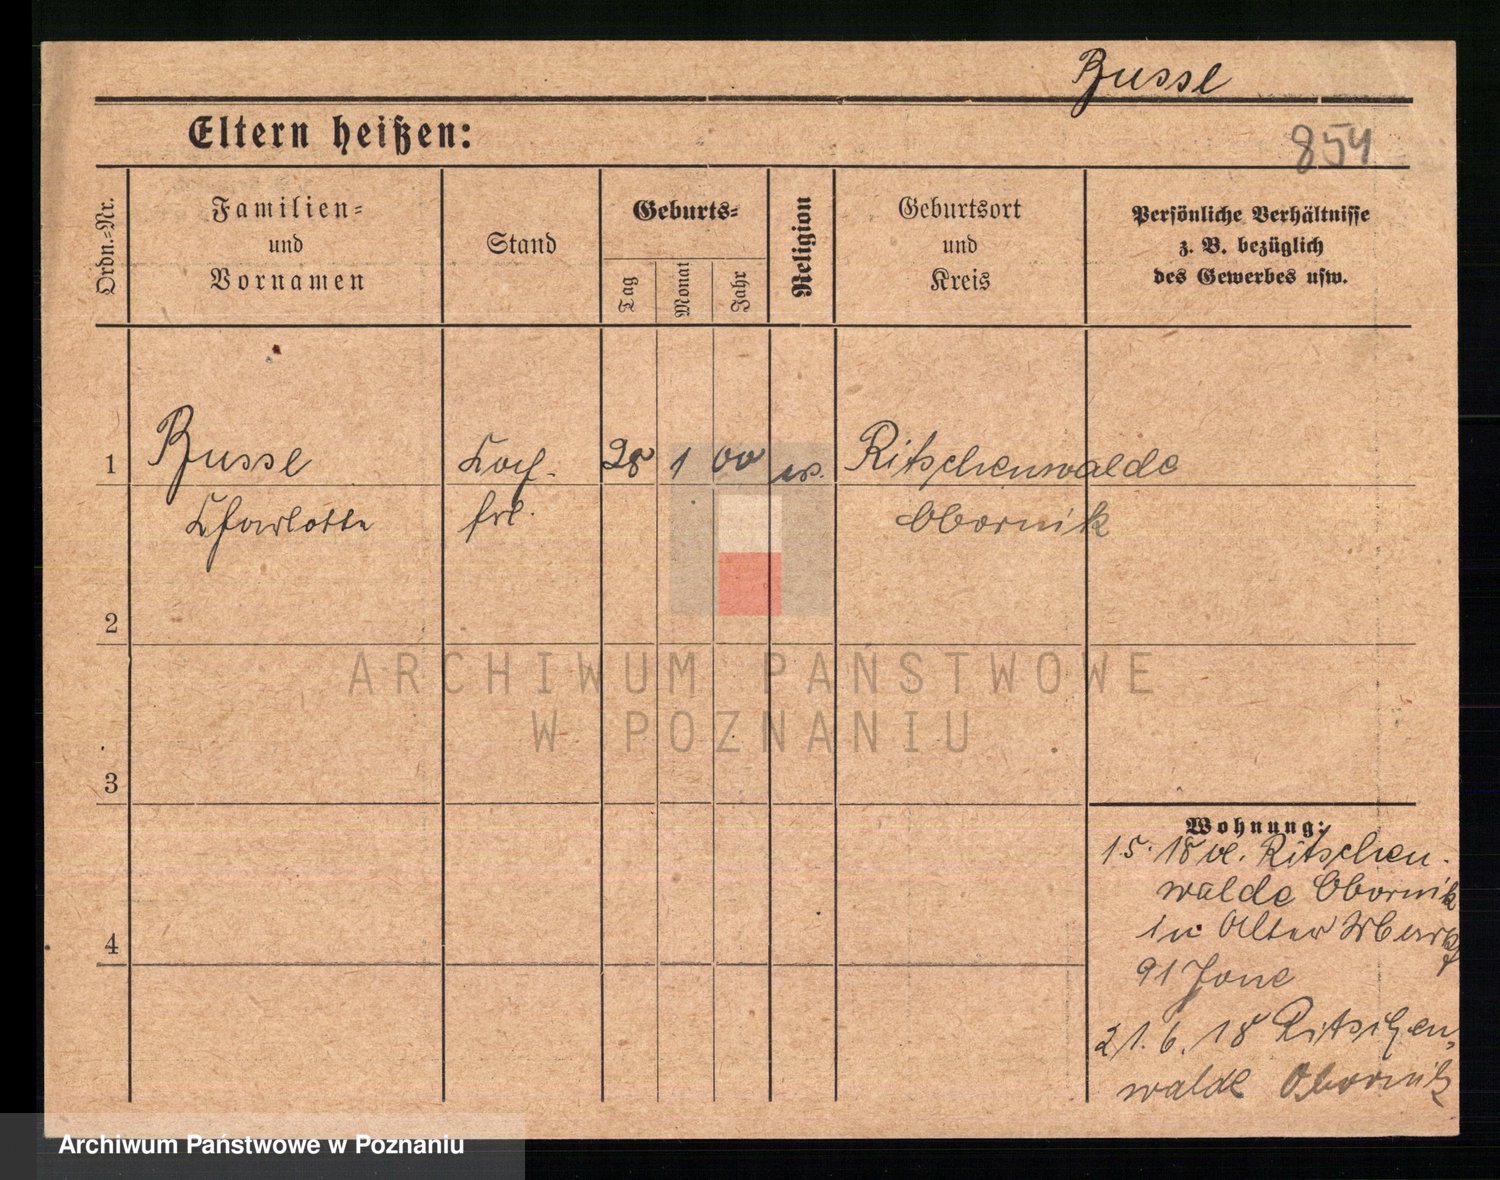 Busse
Eltern heißen:
854
Ordn.=Nr.
Familien=
und
Vornamen
Stand
Geburts=
Tag
Monat
Jahr
Religion
Geburtsort
und
Kreis
Persönliche Verhältnisse
z. B. bezüglich
des Gewerbes usw.
1 Busse 28 1 00 Ritschenwalde
Charlotte Obornik
2
3
4
Wohnung:
15. 18 Ritschen-
walde Obornik
in Alter Markt
91
21. 6. 18 Ritschen-
walde Obornik
ARCHIWUM PAŃSTWOWE
W POZNANIU
Archiwum Państwowe w Poznaniu